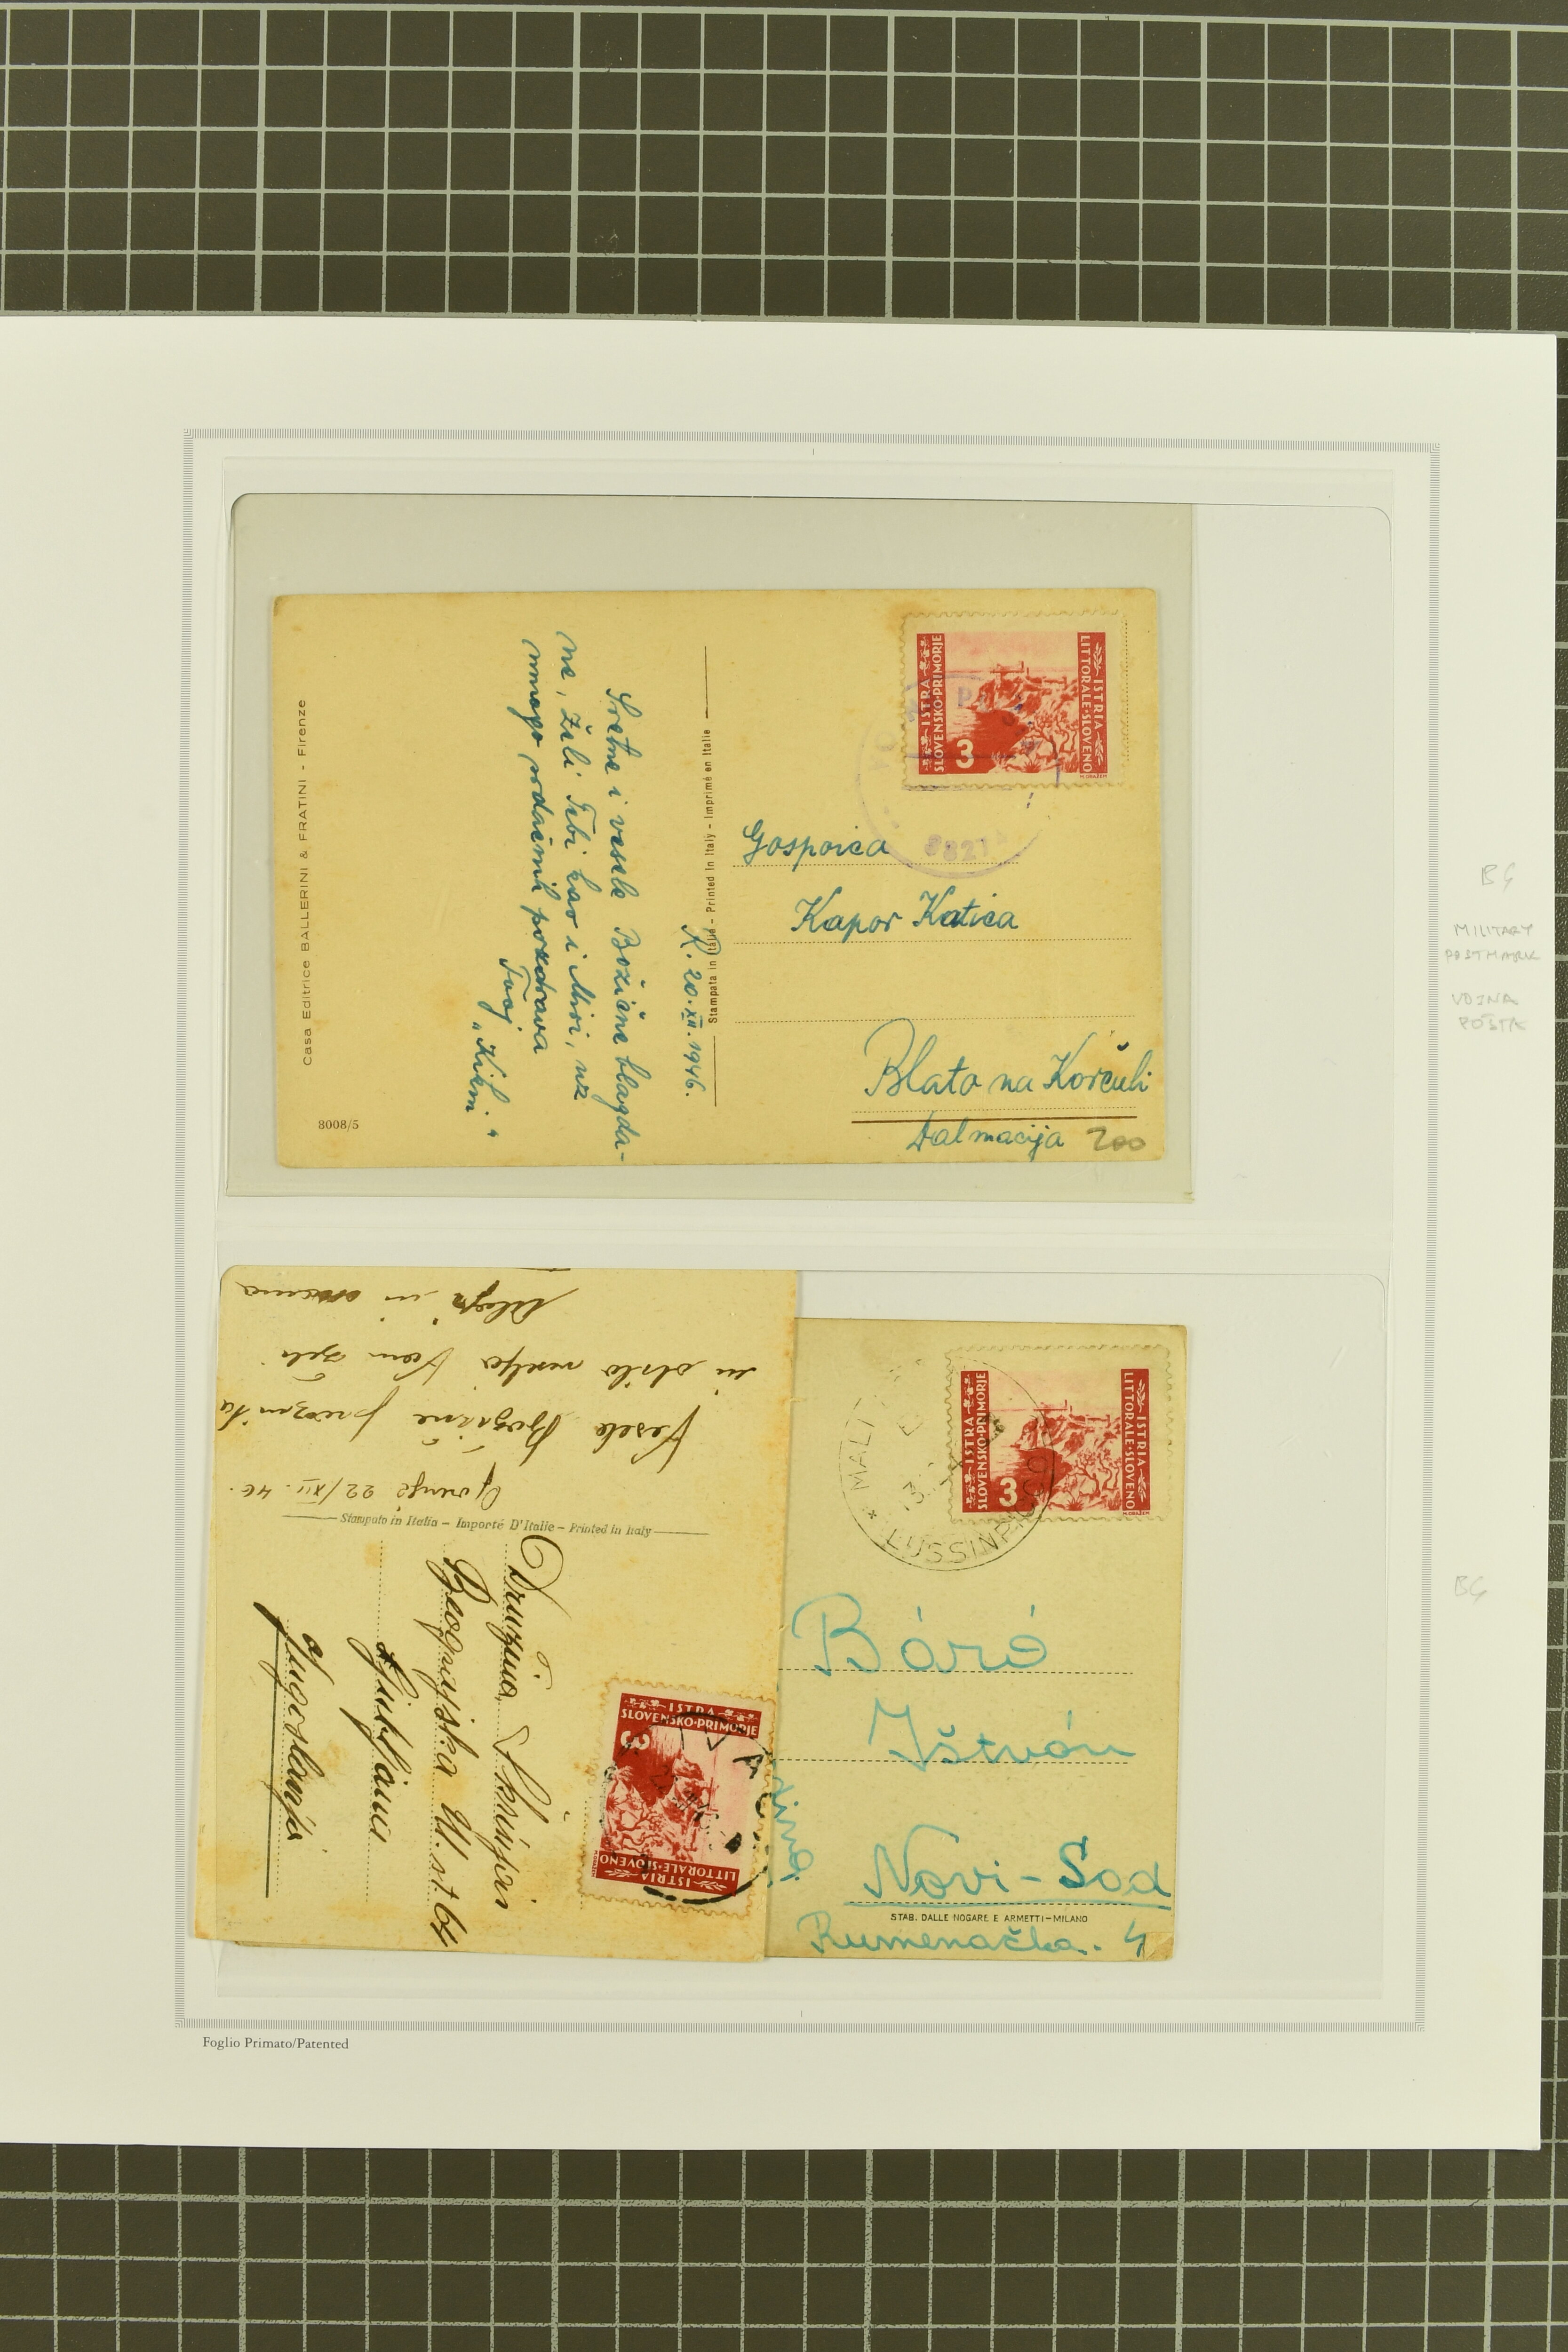 Casa Editrice BALLERINI & FRATINI - Firenze
8008/5
R. 20.XII.1946.
Sretne i vesele Božićne blagda-
ne, želi Tebi kao i Miri, uz
mnogo srdačnih pozdrava
Tvoj
"Kikm."
Stampata in Italia - Printed in Italy - Imprimé en Italie
ISTRA
SLOVENSKO-PRIMORJE
3
ISTRIA
LITTORALE-SLOVENO
Gospoica
Kapor Katica
Blato na Korčuli
Dalmacija 200
BG
MILITARY
POSTMARK
VOJNA
POŠTA
22/XII. 46.
Vesele Božične praznike
Vam želi
Stampato in Italia - Importé D'Italie - Printed in Italy
Družina
Beograjska ul. št 64
Ljubljana
Jugoslavija
ISTRA
SLOVENSKO-PRIMORJE
3
ISTRIA
LITTORALE-SLOVENO
ISTRA
SLOVENSKO-PRIMORJE
3
ISTRIA
LITTORALE-SLOVENO
MALI
LUSSINPICCOLO
Báró
Ištván
Novi-Sad
STAB. DALLE NOGARE E ARMETTI-MILANO
Rumenačka. 4
BG
Foglio Primato/Patented